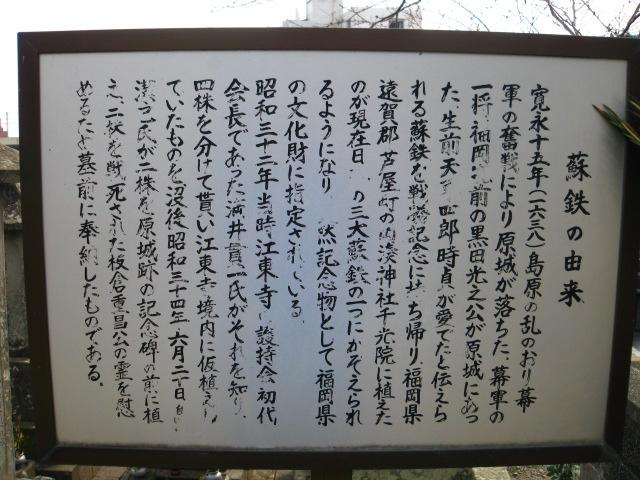 蘇鉄の由来
寛永十五年(一六三八)島原の乱のおり幕
軍の奮戦により原城が落ちた、幕軍の
一将福岡 前の黒田光之公が原城にあっ
た、生前天 四郎時貞が愛でたと伝えら
れる蘇鉄を戦勝記念に ち帰り福岡県
遠賀郡芦屋町の 神社千光院に植えた
のが現在日 の三大蘇鉄の一つにかぞえられ
るようになり 然記念物として福岡県
の文化財に指定され いる
昭和三十二年当時江東寺 護持会初代
会長であった満井 一氏がそれを知り
四株を分けて貰い江東寺境内に仮植され
ていたものを没後昭和三十四年六月二十日
潔 氏が二株を原城跡の記念碑の前に植
え、二株を戦死された板倉重昌公の霊を慰
めるため墓前に奉納したものである。